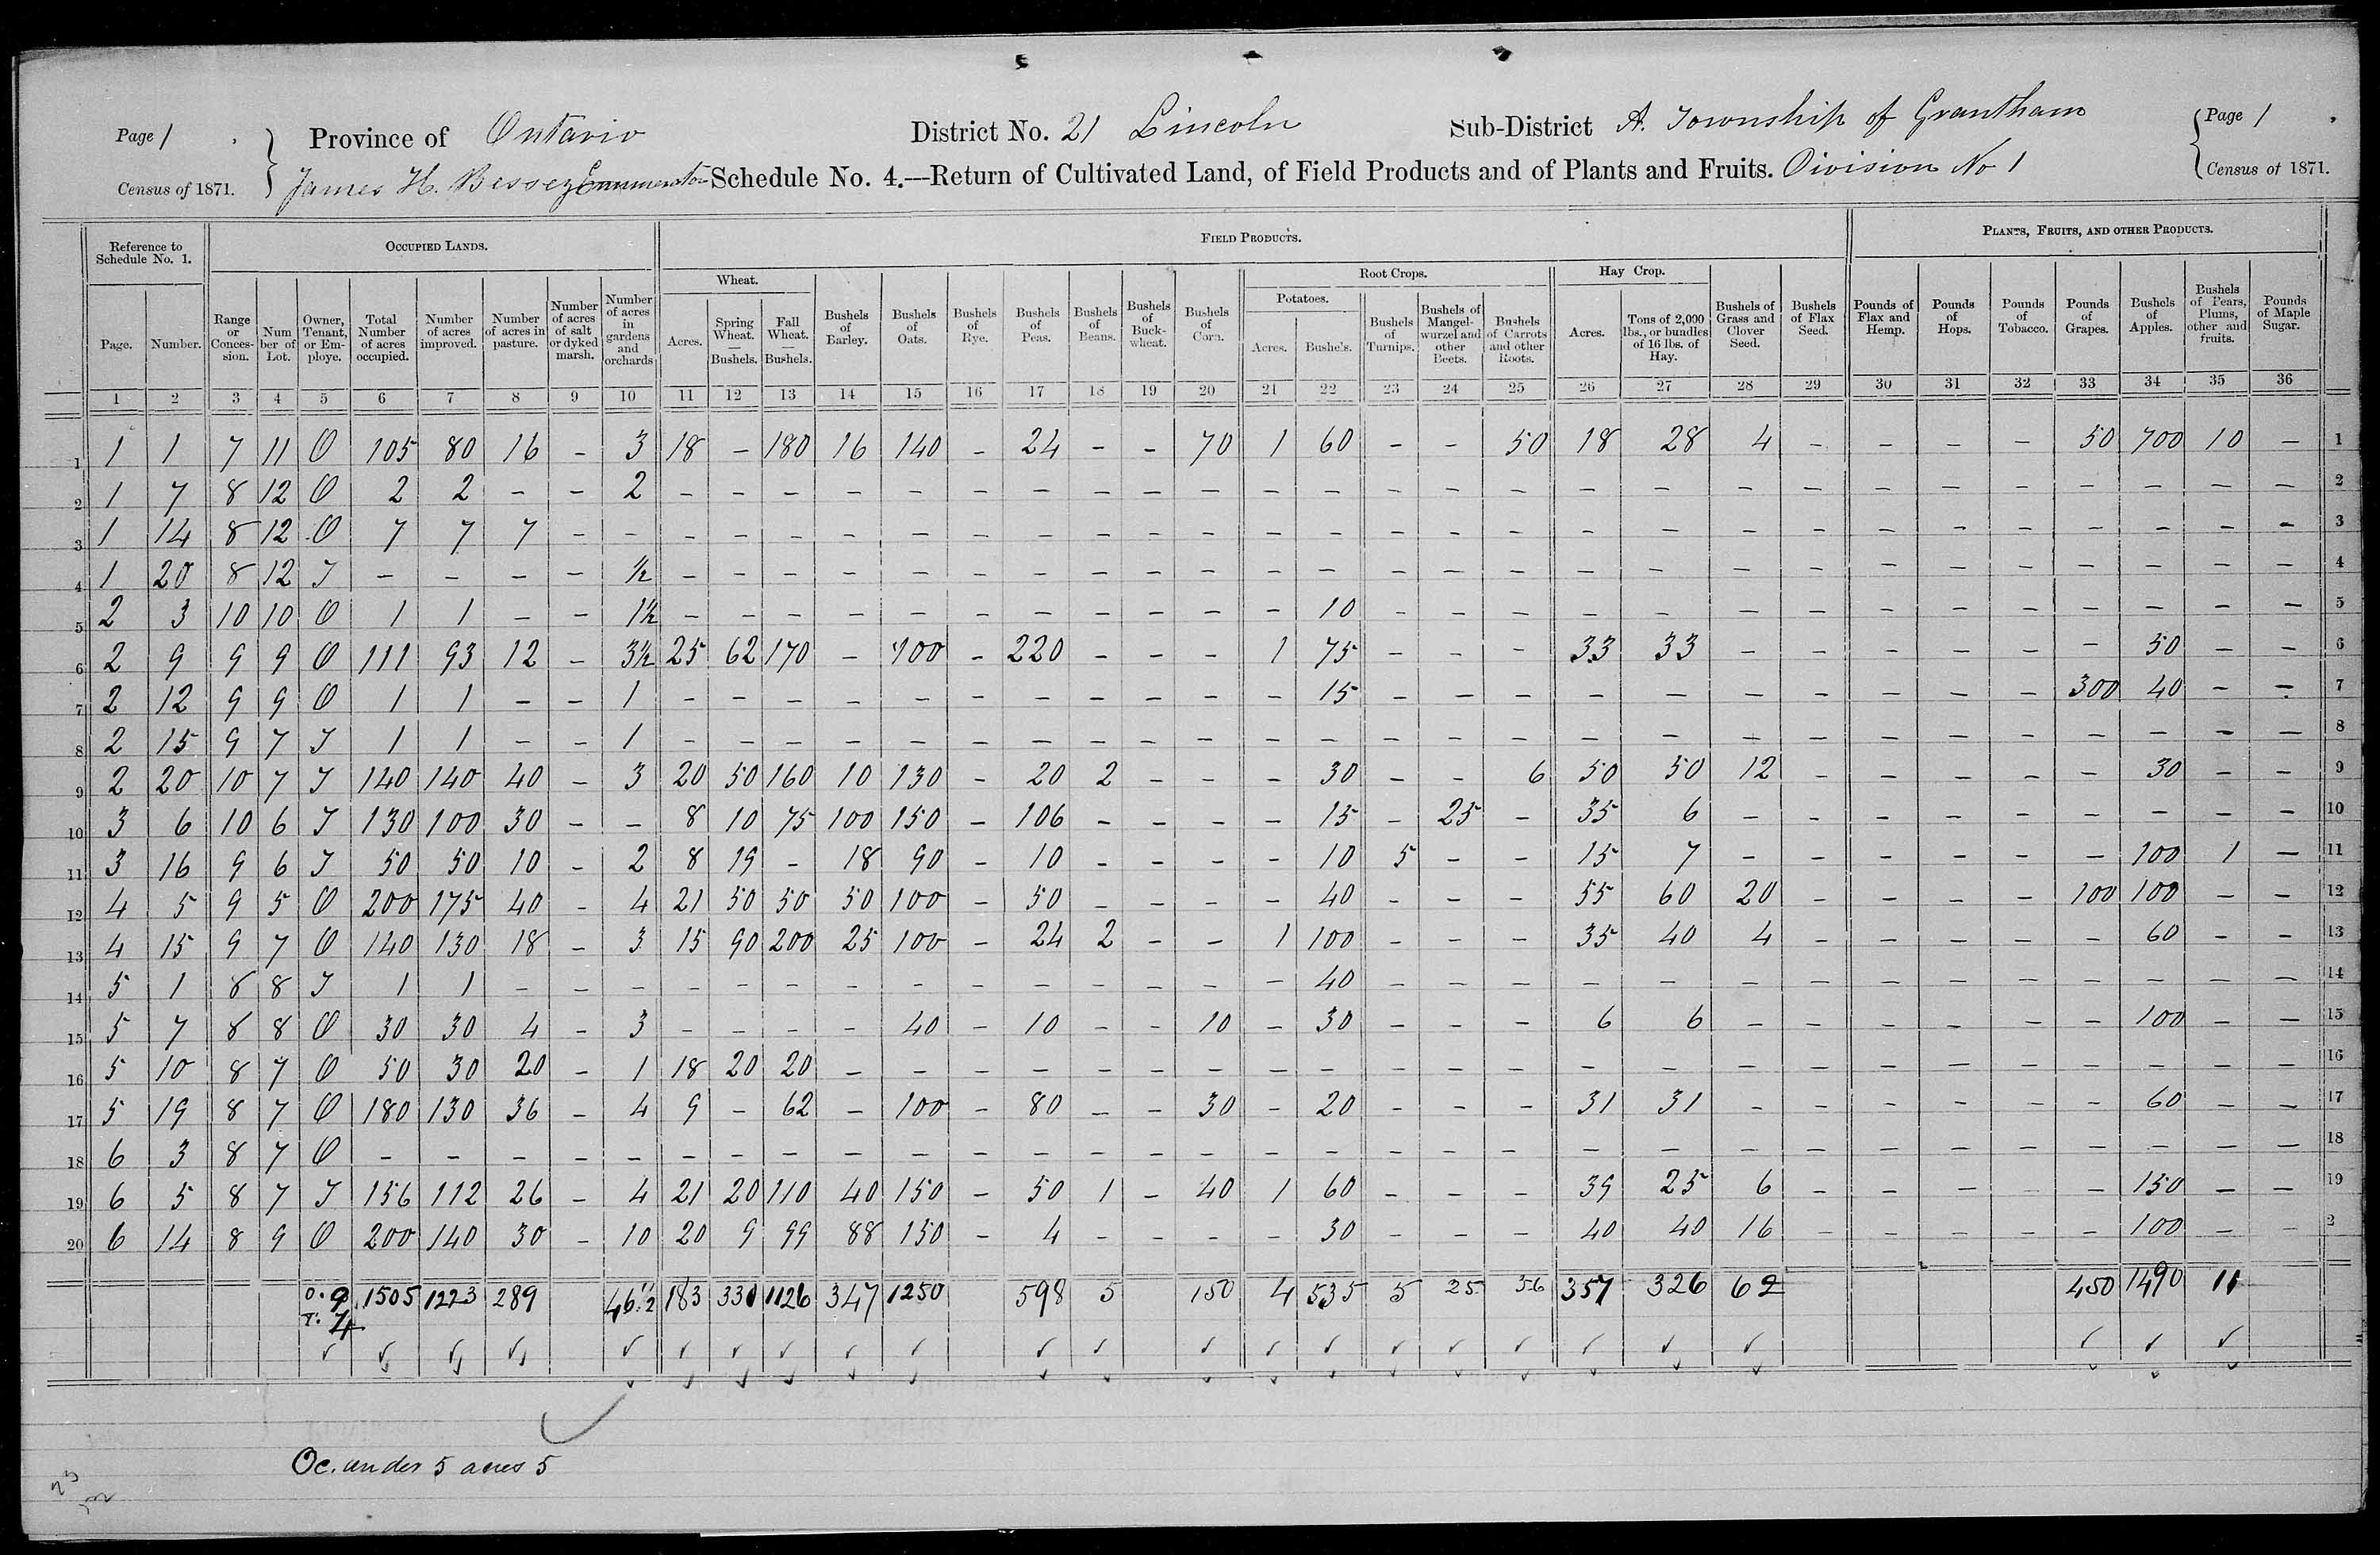 Page 1
Census of 1871.
Province of Ontario
District No. 21 Lincoln
Sub-District A. Township of Grantham
Page 1
Census of 1871.
James H. Bessey Enumerator Schedule No. 4.—Return of Cultivated Land, of Field Products and of Plants and Fruits. Division No 1
Reference to Schedule No. 1. OCCUPIED LANDS. FIELD PRODUCTS. PLANTS, FRUITS, AND OTHER PRODUCTS.
Wheat. Root Crops. Hay Crop.
Potatoes.
Page. Number. Range or Conces-sion. Num ber of Lot. Owner, Tenant, or Em-ploye. Total Number of acres occupied. Number of acres improved. Number of acres in pasture. Number of acres of salt or dyked marsh. Number of acres in gardens and orchards Acres. Spring Wheat. — Bushels. Fall Wheat. — Bushels. Bushels of Barley. Bushels of Oats. Bushels of Rye. Bushels of Peas. Bushels of Beans. Bushels of Buck-wheat. Bushels of Corn. Acres. Bushels. Bushels of Turnips. Bushels of Mangel-wurzel and other Beets. Bushels of Carrots and other Roots. Acres. Tons of 2,000 lbs., or bundles of 16 lbs. of Hay. Bushels of Grass and Clover Seed. Bushels of Flax Seed. Pounds of Flax and Hemp. Pounds of Hops. Pounds of Tobacco. Pounds of Grapes. Bushels of Apples. Bushels of Pears, Plums, other and fruits. Pounds of Maple Sugar.
1 2 3 4 5 6 7 8 9 10 11 12 13 14 15 16 17 18 19 20 21 22 23 24 25 26 27 28 29 30 31 32 33 34 35 36
1 1 1 7 11 O 105 80 16 - 3 18 - 180 16 140 - 24 - - 70 1 60 - - 50 18 28 4 - - - - 50 700 10 - 1
2 1 7 8 12 O 2 2 - - 2 - - - - - - - - - - - - - - - - - - - - - - - - - - 2
3 1 14 8 12 O 7 7 7 - - - - - - - - - - - - - - - - - - - - - - - - - - - - 3
4 1 20 8 12 T - - - - 1/2 - - - - - - - - - - - - - - - - - - - - - - - - - - 4
5 2 3 10 10 O 1 1 - - 1 1/2 - - - - - - - - - - - 10 - - - - - - - - - - - - - - 5
6 2 9 9 9 O 111 93 12 - 3 1/2 25 62 170 - 400 - 220 - - - 1 75 - - - 33 33 - - - - - - 50 - - 6
7 2 12 9 9 O 1 1 - - 1 - - - - - - - - - - - 15 - - - - - - - - - - 300 40 - - 7
8 2 15 9 7 T 1 1 - - 1 - - - - - - - - - - - - - - - - - - - - - - - - - - 8
9 2 20 10 7 T 140 140 40 - 3 20 50 160 10 130 - 20 2 - - - 30 - - 6 50 50 12 - - - - - 30 - - 9
10 3 6 10 6 T 130 100 30 - - 8 10 75 100 150 - 106 - - - - 15 - 25 - 35 6 - - - - - - - - - 10
11 3 16 9 6 T 50 50 10 - 2 8 19 - 18 90 - 10 - - - - 10 5 - - 15 7 - - - - - - 100 1 - 11
12 4 5 9 5 O 200 175 40 - 4 21 50 50 50 100 - 50 - - - - 40 - - - 55 60 20 - - - - 100 100 - - 12
13 4 15 9 7 O 140 130 18 - 3 15 90 200 25 100 - 24 2 - - 1 100 - - - 35 40 4 - - - - - 60 - - 13
14 5 1 8 8 T 1 1 - - - - - - - - - - - - - - 40 - - - - - - - - - - - - - - 14
15 5 7 8 8 O 30 30 4 - 3 - - - - 40 - 10 - - 10 - 30 - - - 6 6 - - - - - - 100 - - 15
16 5 10 8 7 O 50 30 20 - 1 18 20 20 - - - - - - - - - - - - - - - - - - - - - - - 16
17 5 19 8 7 O 180 130 36 - 4 9 - 62 - 100 - 80 - - 30 - 20 - - - 31 31 - - - - - - 60 - - 17
18 6 3 8 7 O - - - - - - - - - - - - - - - - - - - - - - - - - - - - - - - 18
19 6 5 8 7 T 156 112 26 - 4 21 20 110 40 150 - 50 1 - 40 1 60 - - - 39 25 6 - - - - - 150 - - 19
20 6 14 8 9 O 200 140 30 - 10 20 9 99 88 150 - 4 - - - - 30 - - - 40 40 16 - - - - - 100 - - 2
O. 9 1505 1223 289 46 1/2 183 330 1126 347 1250 598 5 150 4 535 5 25 56 357 326 62 450 1490 11
T. 4
Oc. under 5 acres 5